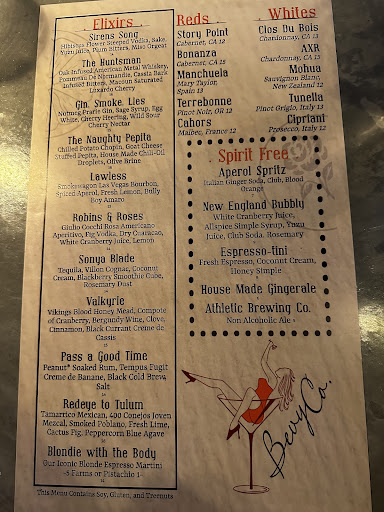 Elixirs
Sirens Song
Hibiskus Flower Steeped Vodka, Sake,
Yuzu Juice, Plum Bitters, Miso Orgeat
The Huntsman
Oak Infused American Metal Whiskey,
Pommeau De Normandie, Cassia Bark
Infused Bitters, Macoun Saturated
Luxardo Cherry
Gin, Smoke, Lies
Nutmeg Prario Gin, Sage Syrup, Egg
White, Cherry Heering, Wild Sour
Cherry Nectar
The Naughty Pepita
Chilled Potato Chopin, Goat Cheese
Stuffed Pepita, House Made Chili-Oil
Droplets, Olive Brine
Lawless
Smokewagon Las Vegas Bourbon,
Spiced Aperol, Fresh Lemon, Bully
Boy Amaro
Robins & Roses
Giulio Cocchi Rosa Americano
Aperitivo, Fig Vodka, Dry Curacao,
White Cranberry Juice, Lemon
Sonya Blade
Tequila, Villon Cognac, Coconut
Cream, Blackberry Smoothie Cube,
Rosemary Dust
Valkyrie
Vikings Blood Honey Mead, Compote
of Cranberry, Burgundy Wine, Clove,
Cinnamon, Black Currant Creme de
Cassis
Pass a Good Time
Peanut* Soaked Rum, Tempus Fugit
Creme de Banane, Black Cold Brew,
Salt
Redeye to Tulum
Tamarrico Mexican, 400 Conejos Joven
Mezcal, Smoked Poblano, Fresh Lime,
Cactus Fig, Peppercorn Blue Agave
Blondie with the Body
Our Iconic Blonde Espresso Martini
-5 Farms or Pistachio
This Menu Contains Soy, Gluten, and Treenuts
Reds
Story Point
Cabernet, CA 12
Bonanza
Cabernet, CA 15
Manchuela
Mary Taylor,
Spain 13
Terrebonne
Pinot Noir, OR 12
Cahors
Malbec, France 12
Whites
Clos Du Bois
Chardonnay, CA 13
AXR
Chardonnay, CA 15
Mohua
Sauvignon Blanc,
New Zealand 12
Tunella
Pinot Grigio, Italy 13
Cipriani
Prosecco, Italy 13
Spirit Free
Aperol Spritz
Italian Ginger Soda, Club, Blood
Orange
New England Bubbly
White Cranberry Juice,
Allspice Simple Syrup, Yuzu
Juice, Club Soda, Rosemary
Espresso-tini
Fresh Espresso, Coconut Cream,
Honey Simple
House Made Gingerale
Athletic Brewing Co.
Non Alcoholic Ale
Bevy Co.